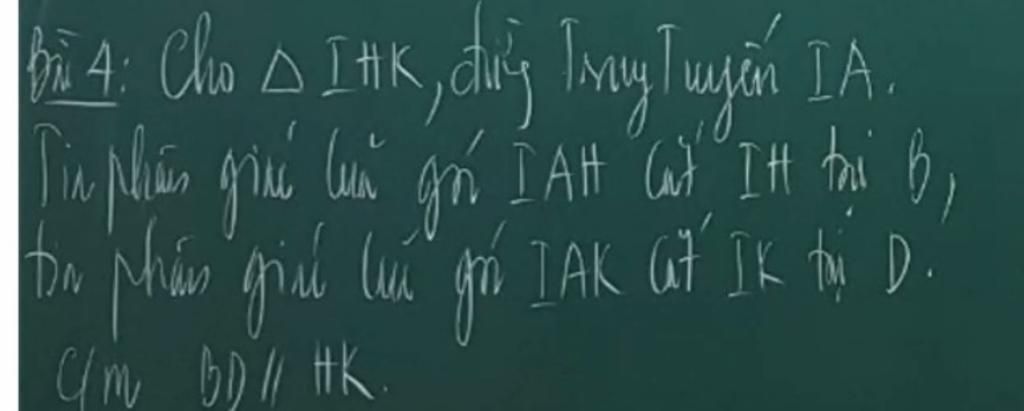 Bài 4: Cho △ IHK, đường Trung Tuyến IA.
Tia phân giác của góc IAH cắt IH tại B,
tia phân giác của góc IAK cắt IK tại D.
C/m BD // HK.